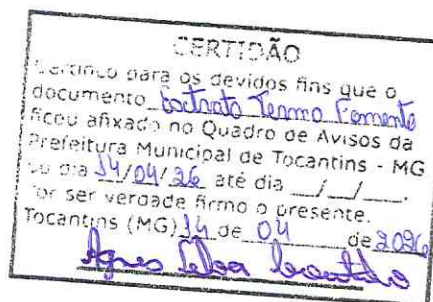 CERTIDÃO
Certifico para os devidos fins que o
documento Extrato Termo Fomento
ficou afixado no Quadro de Avisos da
Prefeitura Municipal de Tocantins - MG
no dia 14/04/26 até dia __/__/__.
Por ser verdade firmo o presente.
Tocantins (MG) 14 de 04 de 2026